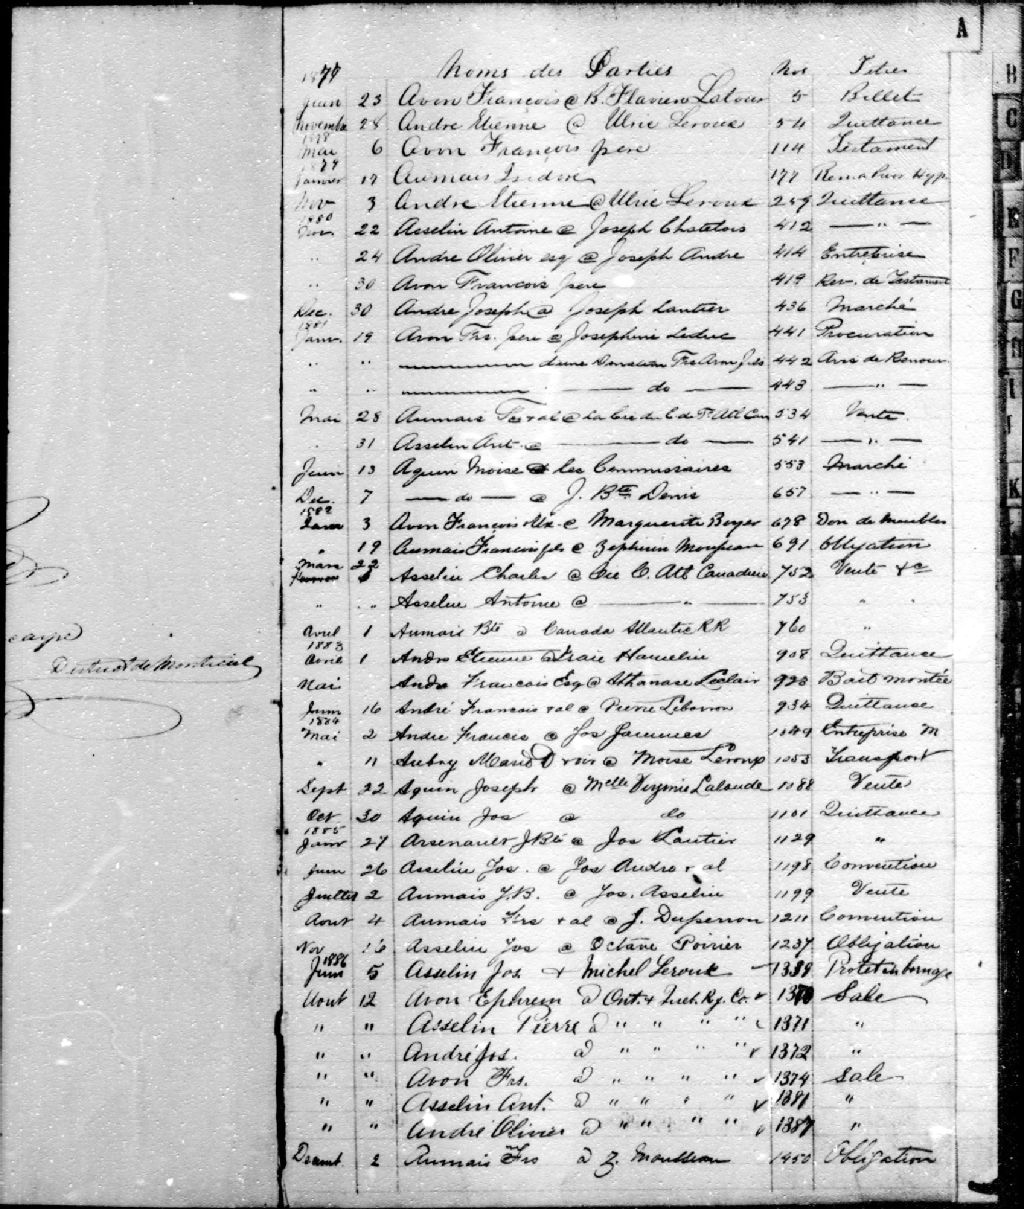 A
1877 Noms des Parties Nos Titres
Juin 23 Avon François @ B. Flavien Latour 5 Billet
Novembre 28 Andre Etienne @ Ulric Leroux 54 Quittance
1878
Mai 6 Avon François père 114 Testament
1879
Janvier 17 Aumais Isidore 177 Hyp
Nov 3 Andre Etienne @ Ulric Leroux 259 Quittance
1880
22 Asselin Antoine @ Joseph 412 — " —
" 24 Andre Olivier esq @ Joseph Andre 414 Entreprise
" 30 Avon Francois pere 419 Rev. de Testament
Dec. 30 Andre Joseph @ Joseph Lautier 436 Marché
1881
Janv. 19 Avon Frs. pere @ Josephine Leduc 441 Procuration
" " — Frs Avon fils 442
" " — do — 443 — " —
Mai 28 Aumais & al @ La Cie de C. de F. Atl Can 534 Vente
" 31 Asselin Ant. @ — do — 541 — " —
Juin 13 Aquin Moise @ les Commissaires 553 Marché
Dec. 7 — do — @ J. Bte Denis 657 — " —
1882
Janv 3 Avon François @ Marguerite Boyer 678 Don de Meubles
" 19 Aumais Francois fils @ Zephirin 691 Obligation
Mars 22 Asselin Charles @ Cie C. Atl Canadien 752 Vente &c
" " Asselin Antoine @ — " — 753 " "
Avril 1 Aumais Bte @ Canada Atlantic RR 760 "
1883
Avril 1 Andre Etienne @ Isaie Hamelin 908 Quittance
Mai Andre Francois Esq @ Athanase Leclair 923 Bail montée
Juin 16 André Francois & al @ Pierre Lebaron 934 Quittance
1884
Mai 2 Andre Francis @ Jos 1049 Entreprise M
" 11 Aubry Marie @ Moise Leroux 1053 Transport
Sept 22 Aquin Joseph @ Melle Virginie Lalonde 1088 Vente
Oct 30 Aquin Jos @ do 1101 Quittance
1885
Janv 27 Arsenault J. Bte @ Jos Lautier 1129 "
Juin 26 Asselin Jos. @ Jos Andre & al 1198 Convention
Juillet 2 Aumais J.B. @ Jos. Asselin 1199 Vente
Aout 4 Aumais Frs & al @ J. Duperron 1211 Convention
Nov 16 Asselin Jos @ Octave Poirier 1237 Obligation
1886
Juin 5 Asselin Jos. & Michel Leroux 1339 Protet
Aout 12 Avon Ephrem @ Ont. & Queb. Ry. Co. 1370 Sale
" " Asselin Pierre @ " " " " 1371 "
" " André Jos. @ " " " " 1372 "
" " Avon Frs. @ " " " " 1374 Sale
" " Asselin Ant. @ " " " " 1381 "
" " André Olivier @ " " " " 1387 "
2 Aumais Frs @ Z. 1450 Obligation
District de Montreal
B
C
D
E
F
G
H
I
J
K